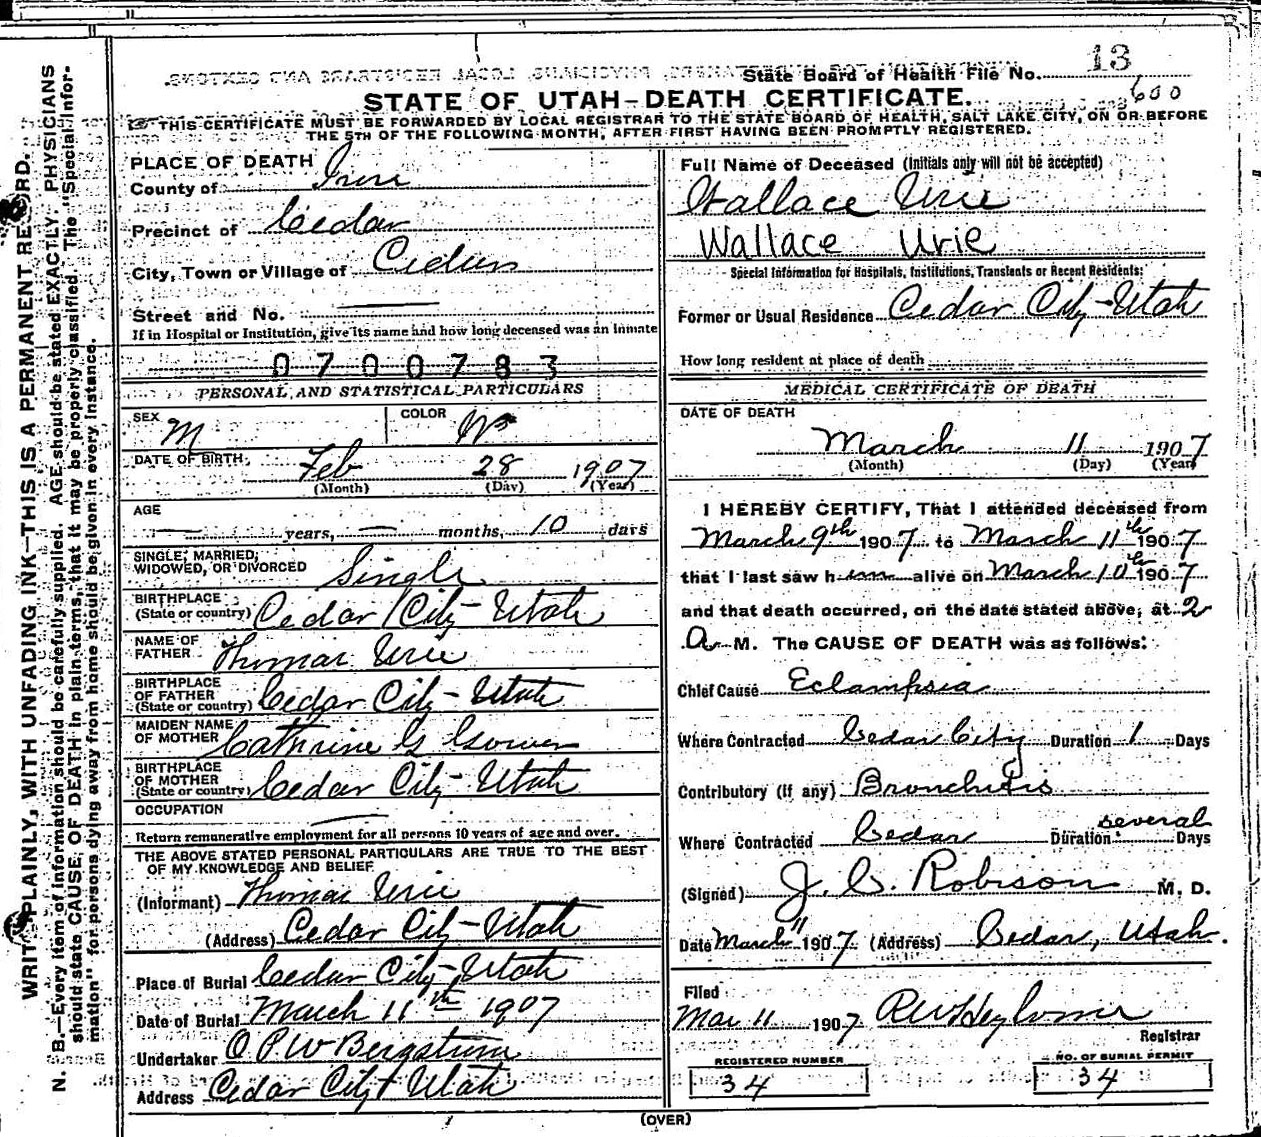 State Board of Health File No. 13
600
STATE OF UTAH—DEATH CERTIFICATE.
THIS CERTIFICATE MUST BE FORWARDED BY LOCAL REGISTRAR TO THE STATE BOARD OF HEALTH, SALT LAKE CITY, ON OR BEFORE
THE 5TH OF THE FOLLOWING MONTH, AFTER FIRST HAVING BEEN PROMPTLY REGISTERED.
WRITE PLAINLY, WITH UNFADING INK—THIS IS A PERMANENT RECORD.
N. B.—Every item of information should be carefully supplied. AGE should be stated EXACTLY. PHYSICIANS
should state CAUSE OF DEATH in plain terms, that it may be properly classified. The "Special Infor-
mation" for persons dying away from home should be given in every instance.
PLACE OF DEATH
County of Iron
Precinct of Cedar
City, Town or Village of Cedar
Street and No.
If in Hospital or Institution, give its name and how long deceased was an Inmate
0700783
PERSONAL AND STATISTICAL PARTICULARS
SEX M COLOR W
DATE OF BIRTH Feb 28 1907
(Month) (Day) (Year)
AGE
— years, — months, 10 days
SINGLE, MARRIED,
WIDOWED, OR DIVORCED Single
BIRTHPLACE
(State or country) Cedar City - Utah
NAME OF
FATHER Thomas Urie
BIRTHPLACE
OF FATHER
(State or country) Cedar City - Utah
MAIDEN NAME
OF MOTHER Cathrine G Gower
BIRTHPLACE
OF MOTHER
(State or country) Cedar City - Utah
OCCUPATION
Return remunerative employment for all persons 10 years of age and over.
THE ABOVE STATED PERSONAL PARTICULARS ARE TRUE TO THE BEST
OF MY KNOWLEDGE AND BELIEF
(Informant) Thomas Urie
(Address) Cedar City - Utah
Place of Burial Cedar City - Utah
Date of Burial March 11th 1907
Undertaker O P W Bergstrom
Address Cedar City Utah
Full Name of Deceased (Initials only will not be accepted)
Wallace Urie
Wallace Urie
Special Information for Hospitals, Institutions, Transients or Recent Residents:
Former or Usual Residence Cedar City - Utah
How long resident at place of death
MEDICAL CERTIFICATE OF DEATH
DATE OF DEATH
March 11 1907
(Month) (Day) (Year)
I HEREBY CERTIFY, That I attended deceased from
March 9th 1907 to March 11th 1907
that I last saw him alive on March 10th 1907
and that death occurred, on the date stated above, at 2
A M. The CAUSE OF DEATH was as follows:
Chief Cause Eclampsia
Where Contracted Cedar City Duration 1 Days
Contributory (If any) Bronchitis
Where Contracted Cedar Duration several Days
(Signed) J. C. Robison M. D.
Date March 11 1907 (Address) Cedar, Utah.
Filed
Mar 11 1907
Registrar
REGISTERED NUMBER
34
NO. OF BURIAL PERMIT
34
(OVER)